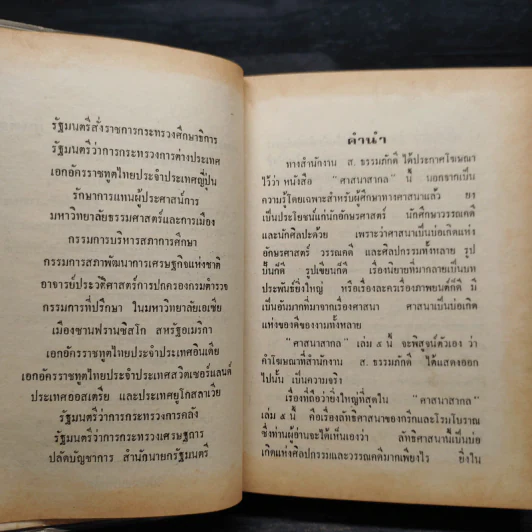 รัฐมนตรีสั่งราชการกระทรวงศึกษาธิการ
รัฐมนตรีว่าการกระทรวงการต่างประเทศ
เอกอัครราชทูตไทยประจำประเทศญี่ปุ่น
รักษาการแทนผู้ประศาสน์การ
มหาวิทยาลัยธรรมศาสตร์และการเมือง
กรรมการบริหารสภาการศึกษา
กรรมการสภาพัฒนาการเศรษฐกิจแห่งชาติ
อาจารย์ประวัติศาสตร์การปกครองกรมตำรวจ
กรรมการที่ปรึกษา ในมหาวิทยาลัยเอเซีย
เมืองซานฟรานซิสโก สหรัฐอเมริกา
เอกอัครราชทูตไทยประจำประเทศอินเดีย
เอกอัครราชทูตไทยประจำประเทศสวิตเซอร์แลนด์
ประเทศออสเตรีย และประเทศยูโกสลาเวีย
รัฐมนตรีว่าการกระทรวงการคลัง
รัฐมนตรีว่าการกระทรวงเศรษฐการ
ปลัดบัญชาการ สำนักนายกรัฐมนตรี
คำนำ
ทางสำนักงาน ส. ธรรมภักดี ได้ประกาศโฆษณา
ไว้ว่า หนังสือ "ศาสนาสากล" นี้ นอกจากเป็น
ความรู้โดยเฉพาะสำหรับผู้ศึกษาทางศาสนาแล้ว ยัง
เป็นประโยชน์แก่นักอักษรศาสตร์ นักศึกษาวรรณคดี
และนักศิลปะด้วย เพราะว่าศาสนาเป็นบ่อเกิดแห่ง
อักษรศาสตร์ วรรณคดี และศิลปกรรมทั้งหลาย รูป
ปั้นก็ดี รูปเขียนก็ดี เรื่องนิยายที่มากลายเป็นบท
ประพันธ์ยิ่งใหญ่ หรือเรื่องละครเรื่องภาพยนต์ก็ดี มี
เป็นอันมากที่มาจากเรื่องศาสนา ศาสนาเป็นบ่อเกิด
แห่งของดีของงามทั้งหลาย
"ศาสนาสากล" เล่ม ๕ นี้ จะพิสูจน์ตัวเอง ว่า
คำโฆษณาที่สำนักงาน ส. ธรรมภักดี ได้แสดงออก
ไปนั้น เป็นความจริง
เรื่องที่ถือว่ายิ่งใหญ่ที่สุดใน "ศาสนาสากล"
เล่ม ๕ นี้ คือเรื่องลัทธิศาสนาของกรีกและโรมโบราณ
ซึ่งท่านผู้อ่านจะได้เห็นเองว่า ลัทธิศาสนานี้เป็นบ่อ
เกิดแห่งศิลปกรรมและวรรณคดีมากเพียงไร ยิ่งใน